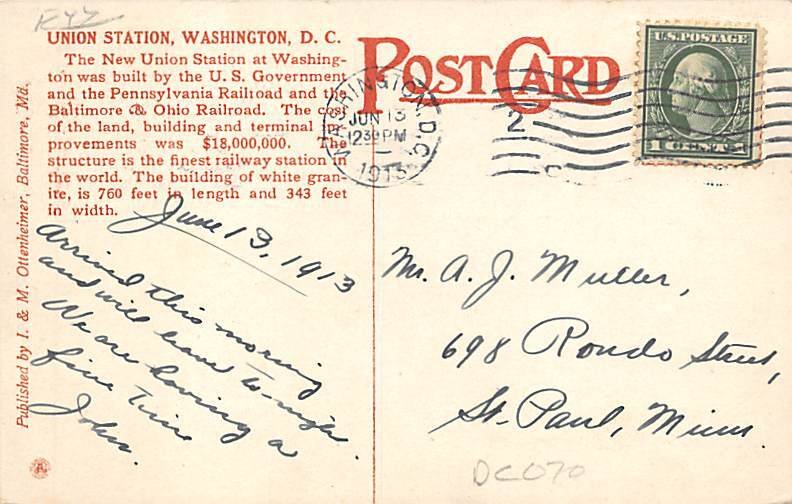 EYZ
UNION STATION, WASHINGTON, D. C.
The New Union Station at Washing-
ton was built by the U. S. Government
and the Pennsylvania Railroad and the
Baltimore & Ohio Railroad. The cost
of the land, building and terminal im-
provements was $18,000,000. The
structure is the finest railway station in
the world. The building of white gran-
ite, is 760 feet in length and 343 feet
in width.
Published by I. & M. Ottenheimer, Baltimore, Md.
POST CARD
WASHINGTON, D.C.
JUN 13
12 30 PM
1913
2
U.S. POSTAGE
1 CENT 1
June 13, 1913
Arrived this morning
and will leave to-night.
We are having a
fine time
John.
Mr. A. J. Muller,
698 Rondo Street,
St. Paul, Minn.
DC070